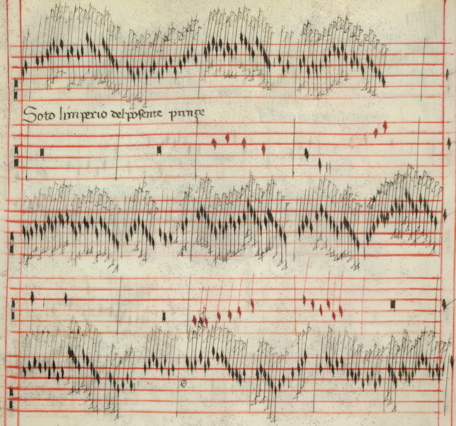 Soto limperio del posente prinze
e